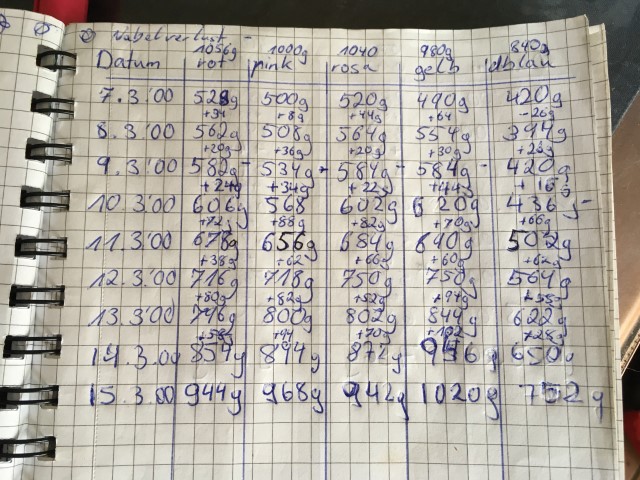 Nabelverlust
1056g 1000g 1040 980g 840g
Datum rot pink rosa gelb dblau
7.3.'00 528g 500g 520g 490g 420g
+34 +8g +44g +64 -26g
8.3.'00 562g 508g 564g 554g 394g
+20g +36g +20g +30g +26g
9.3.'00 582g 534g 584g 584g 420g
+24g +34g +22g +44g +16g
10.3.'00 606g 568 602g 620g 436g
+72g +88g +82g +70g +66g
11.3.'00 678g 656g 684g 690g 502g
+38g +62 +66g +60g +62g
12.3.'00 716g 718g 750g 750g 564g
+80g +82g +52g +94g
13.3.'00 796g 800g 802g 844g 622g
+58g +94 +70g +28g
14.3.00 854g 894g 872g 650g
15.3.00 944g 968g 942g 1020g 752g